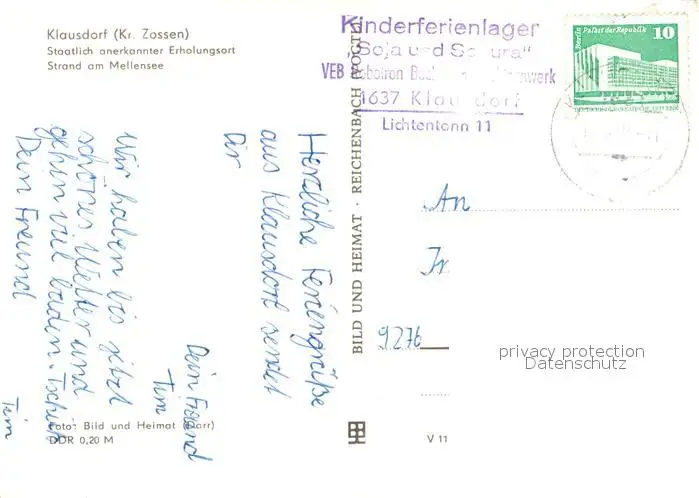 Klausdorf (Kr. Zossen)
Staatlich anerkannter Erholungsort
Strand am Mellensee
Kinderferienlager
"Soja und
VEB Robotron
1637 Klausdorf
Lichtentann 11
Berlin Palast der Republik
10
BILD UND HEIMAT · REICHENBACH (VOGTL)
Herzliche Feriengrüße
aus Klausdorf sendet
Dir
Dein Freund
Tim
Wir haben bis jetzt
schönes Wetter und
gehen viel baden. Tschüß
Dein Freund
Tim
An
Fr.
9276
Foto: Bild und Heimat (Darr)
DDR 0,20 M
V 11
privacy protection
Datenschutz